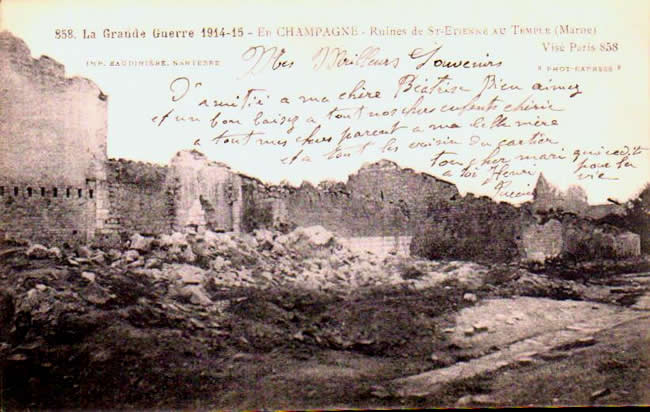 858. La Grande Guerre 1914-15 - En CHAMPAGNE - Ruines de ST-ETIENNE AU TEMPLE (Marne)
Visé Paris 858
IMP. BAUDINIÈRE, NANTERRE
" PHOT-EXPRESS "
Mes Meilleurs Souvenirs
D'amitié a ma chère Béatrise Bien aimez
et un bon baisez a tout nos chers enfents chérie
a tout mes chers parent a ma belle mère
et a tout les voisin du cartier
ton cher mari qui
a toi Henri pour la
vie